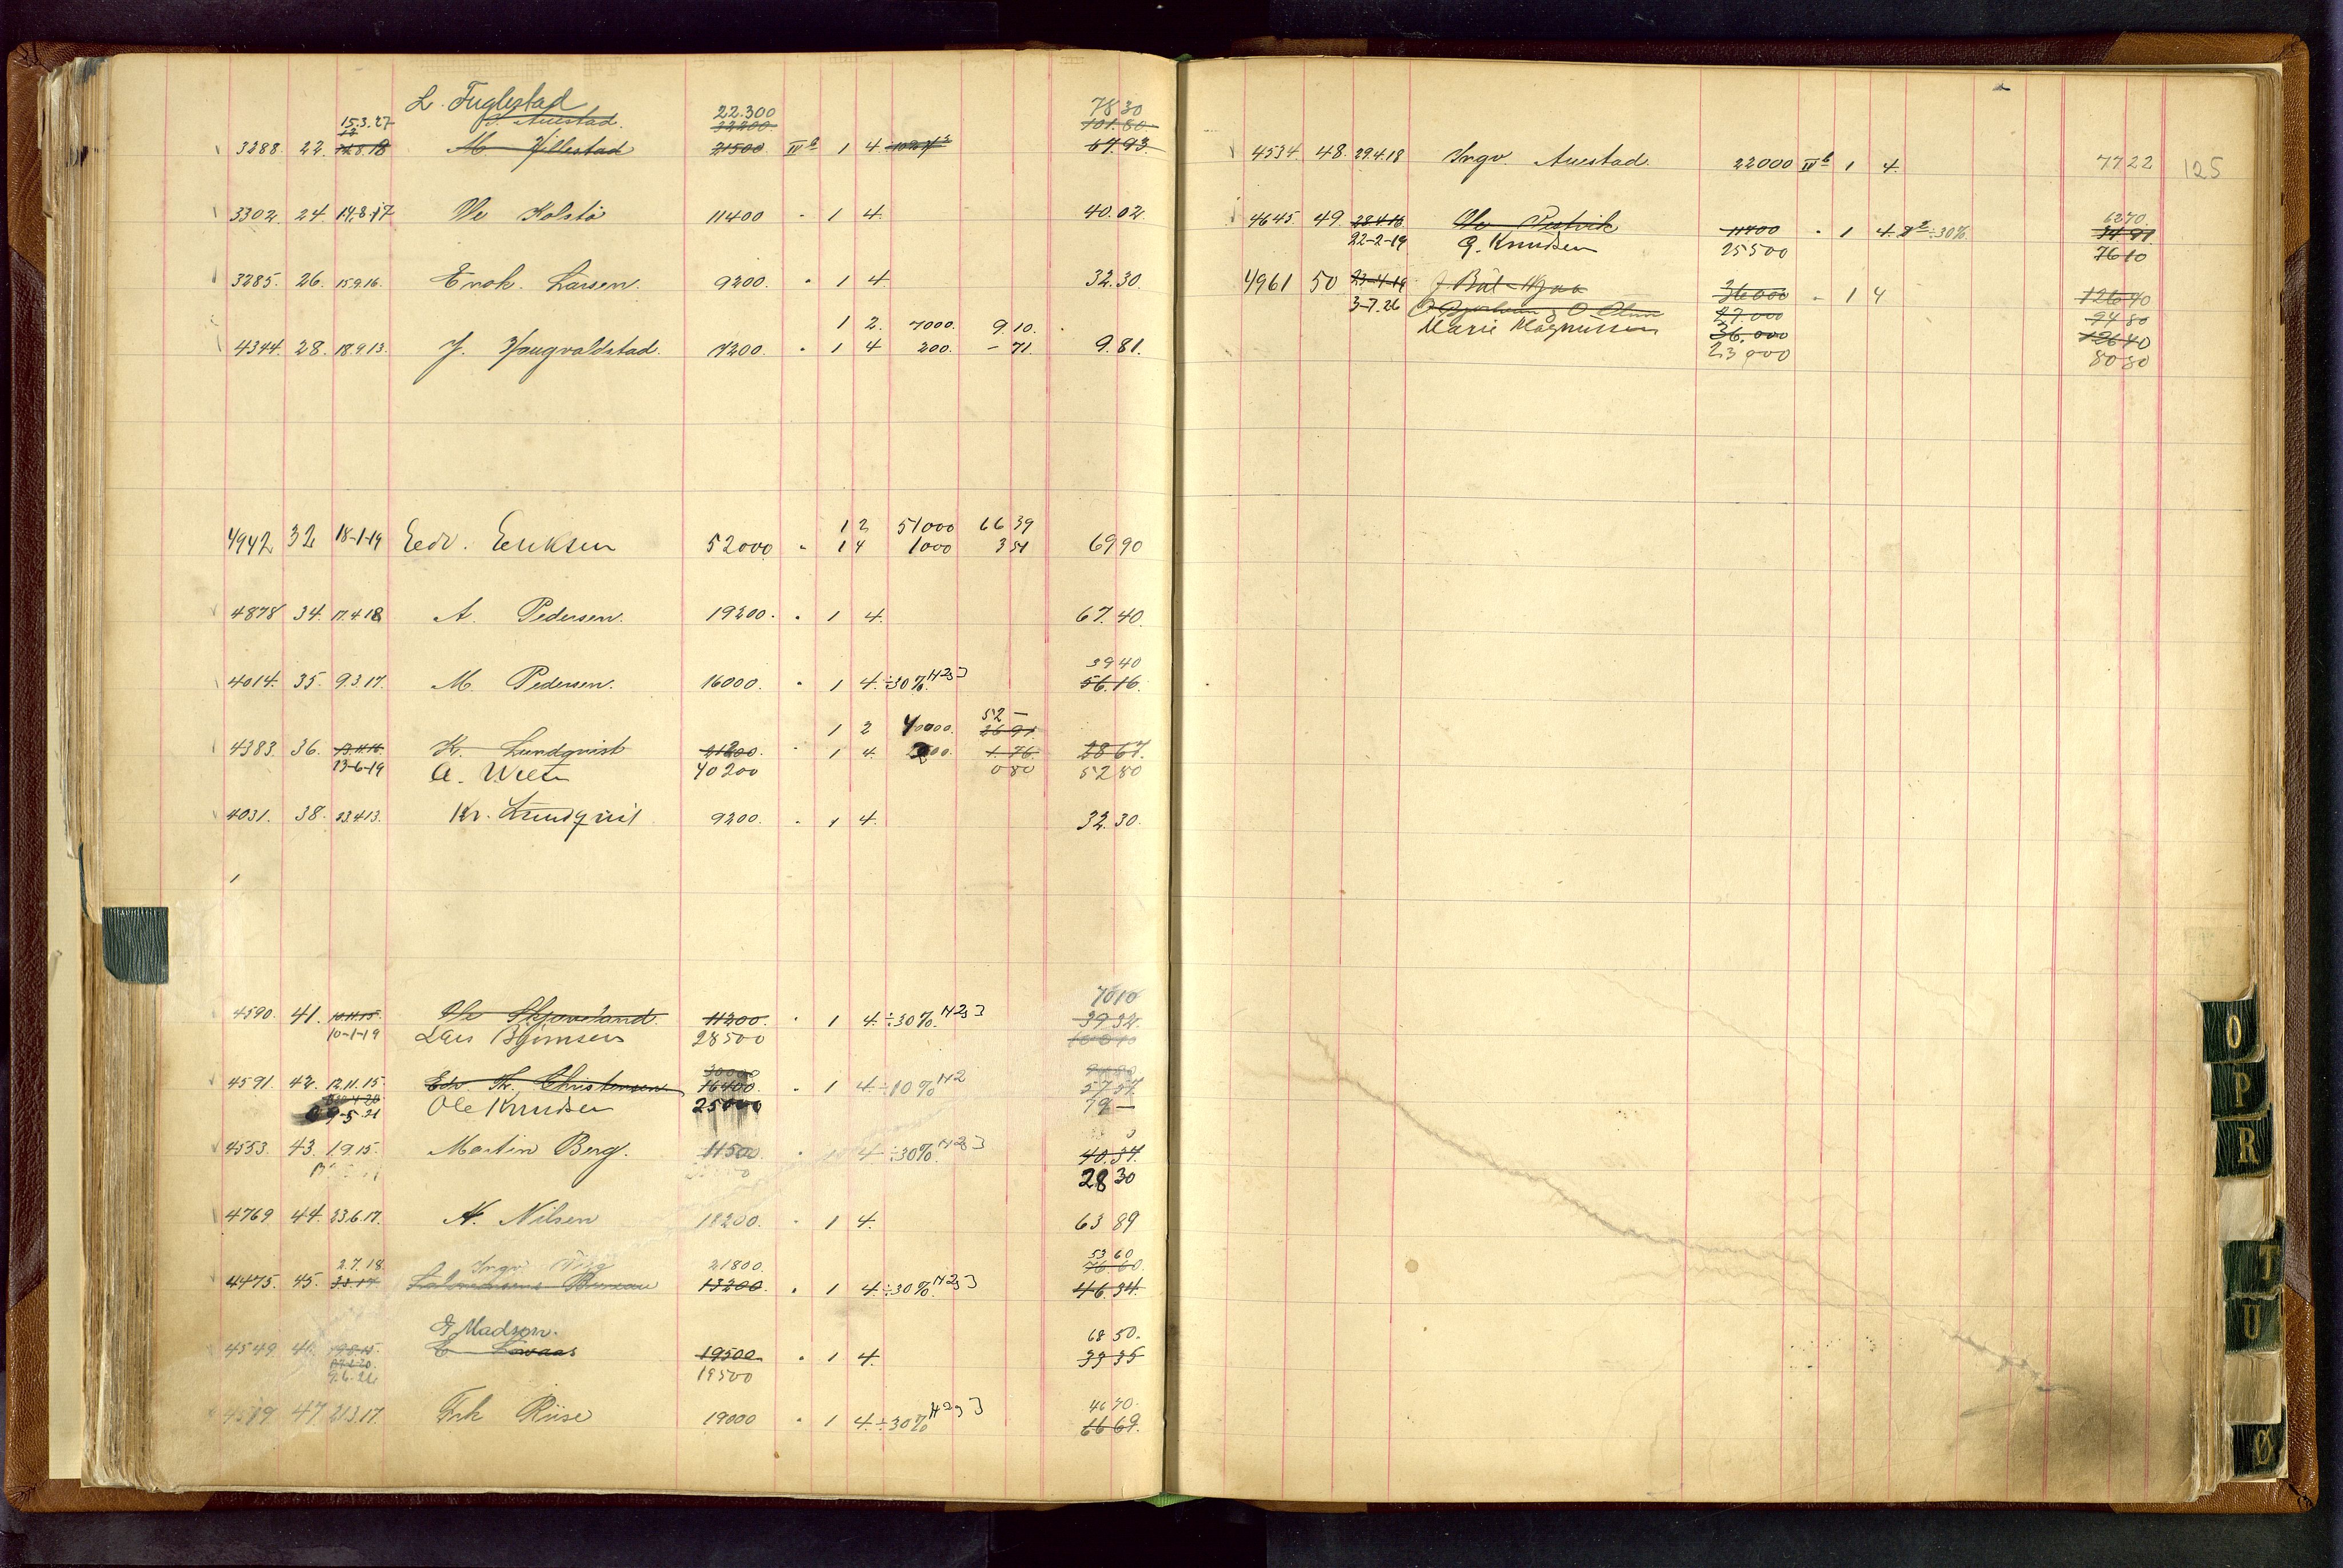 L. Fuglestad 22.300 78 30
15.3.27 Auestad. 32200 101.80
3288. 22. M. Jillestad 21500 IV b 1 4 67.93
3302. 24. 14.8.17 Ole Kolstø 11400 " 1 4. 40.02
3285. 26. 15.9.16. Enok. Larsen. 9200. " 1 4. 32.30.
1 2. 7000. 9.10.
4344. 28. 18.9.13. J. Haugvaldstad. 7200. " 1 4 200. – 71. 9.81.
1 2 51000 66 39
4942 32 18-1-19 Edv. Eriksen 52000 " 1 4 1000 3 51 69 90
4878 34. 17.4.18 A. Pedersen. 19200. " 1 4. 67.40.
39 40
4014. 35. 9.3.17. M. Pedersen. 16000. " 1 4. ÷30%. H23] 56.16.
1 2 40000. 52 – 26 91
4383. 36. 13.11.18. K. Lundqvist 21200. " 1 4. 200. 1.76. 28 67.
13-6-19 A. 40200 0 80 52 80
4031. 38. 23.4.13. Kr. Lundqvist 9200. " 1 4. 32.30.
70 10
4590. 41. 10.11.15. Ole Skjæveland. 11200. " 1 4. ÷30%. H23] 39 32.
10-1-19 Lars Bjørnsen 28500 100 10
30000
4591. 42. 12.11.15. Edv. Th. Christensen 16400. " 1 4. ÷10% H2 57 57
9-5-21 Ole Knudsen 25000 79 –
4553. 43. 1.9.15. Martin Berg. 11500. " 4 ÷30%. H23] 40.37.
28 30
4769 44. 23.6.17. N. Nilsen 18200. " 1 4. 63 89
2.7.18. Ingv. 21800. 53 60 76.60.
4475. 45. Bureau 13200. " 1 4. ÷30%. H23] 46.34.
G Madson. 68 50.
4549. 46. 19.8.15. 19500. " 1 4. 33 35
9.6.26 19500
46 70.
47 21.3.17. Frk Riise 19000 " 1 4. ÷30% H23] 66 69.
4534. 48. 29.4.18 Ingv. Auestad. 22000 IV b 1 4. 77 22 125
62 70.
4645. 49. 28.4.16 Ole 11400 " 1 4. ÷30%. 34 91
22-2-19 G. Knudsen 25500 76 10
4961 50 23-4-19 36000 " 1 4 126 40
3-7.26 27.000 94 80
Marie Magnussen 36.000 126 40
23000 80 80
O
P
R
T
U
Ø